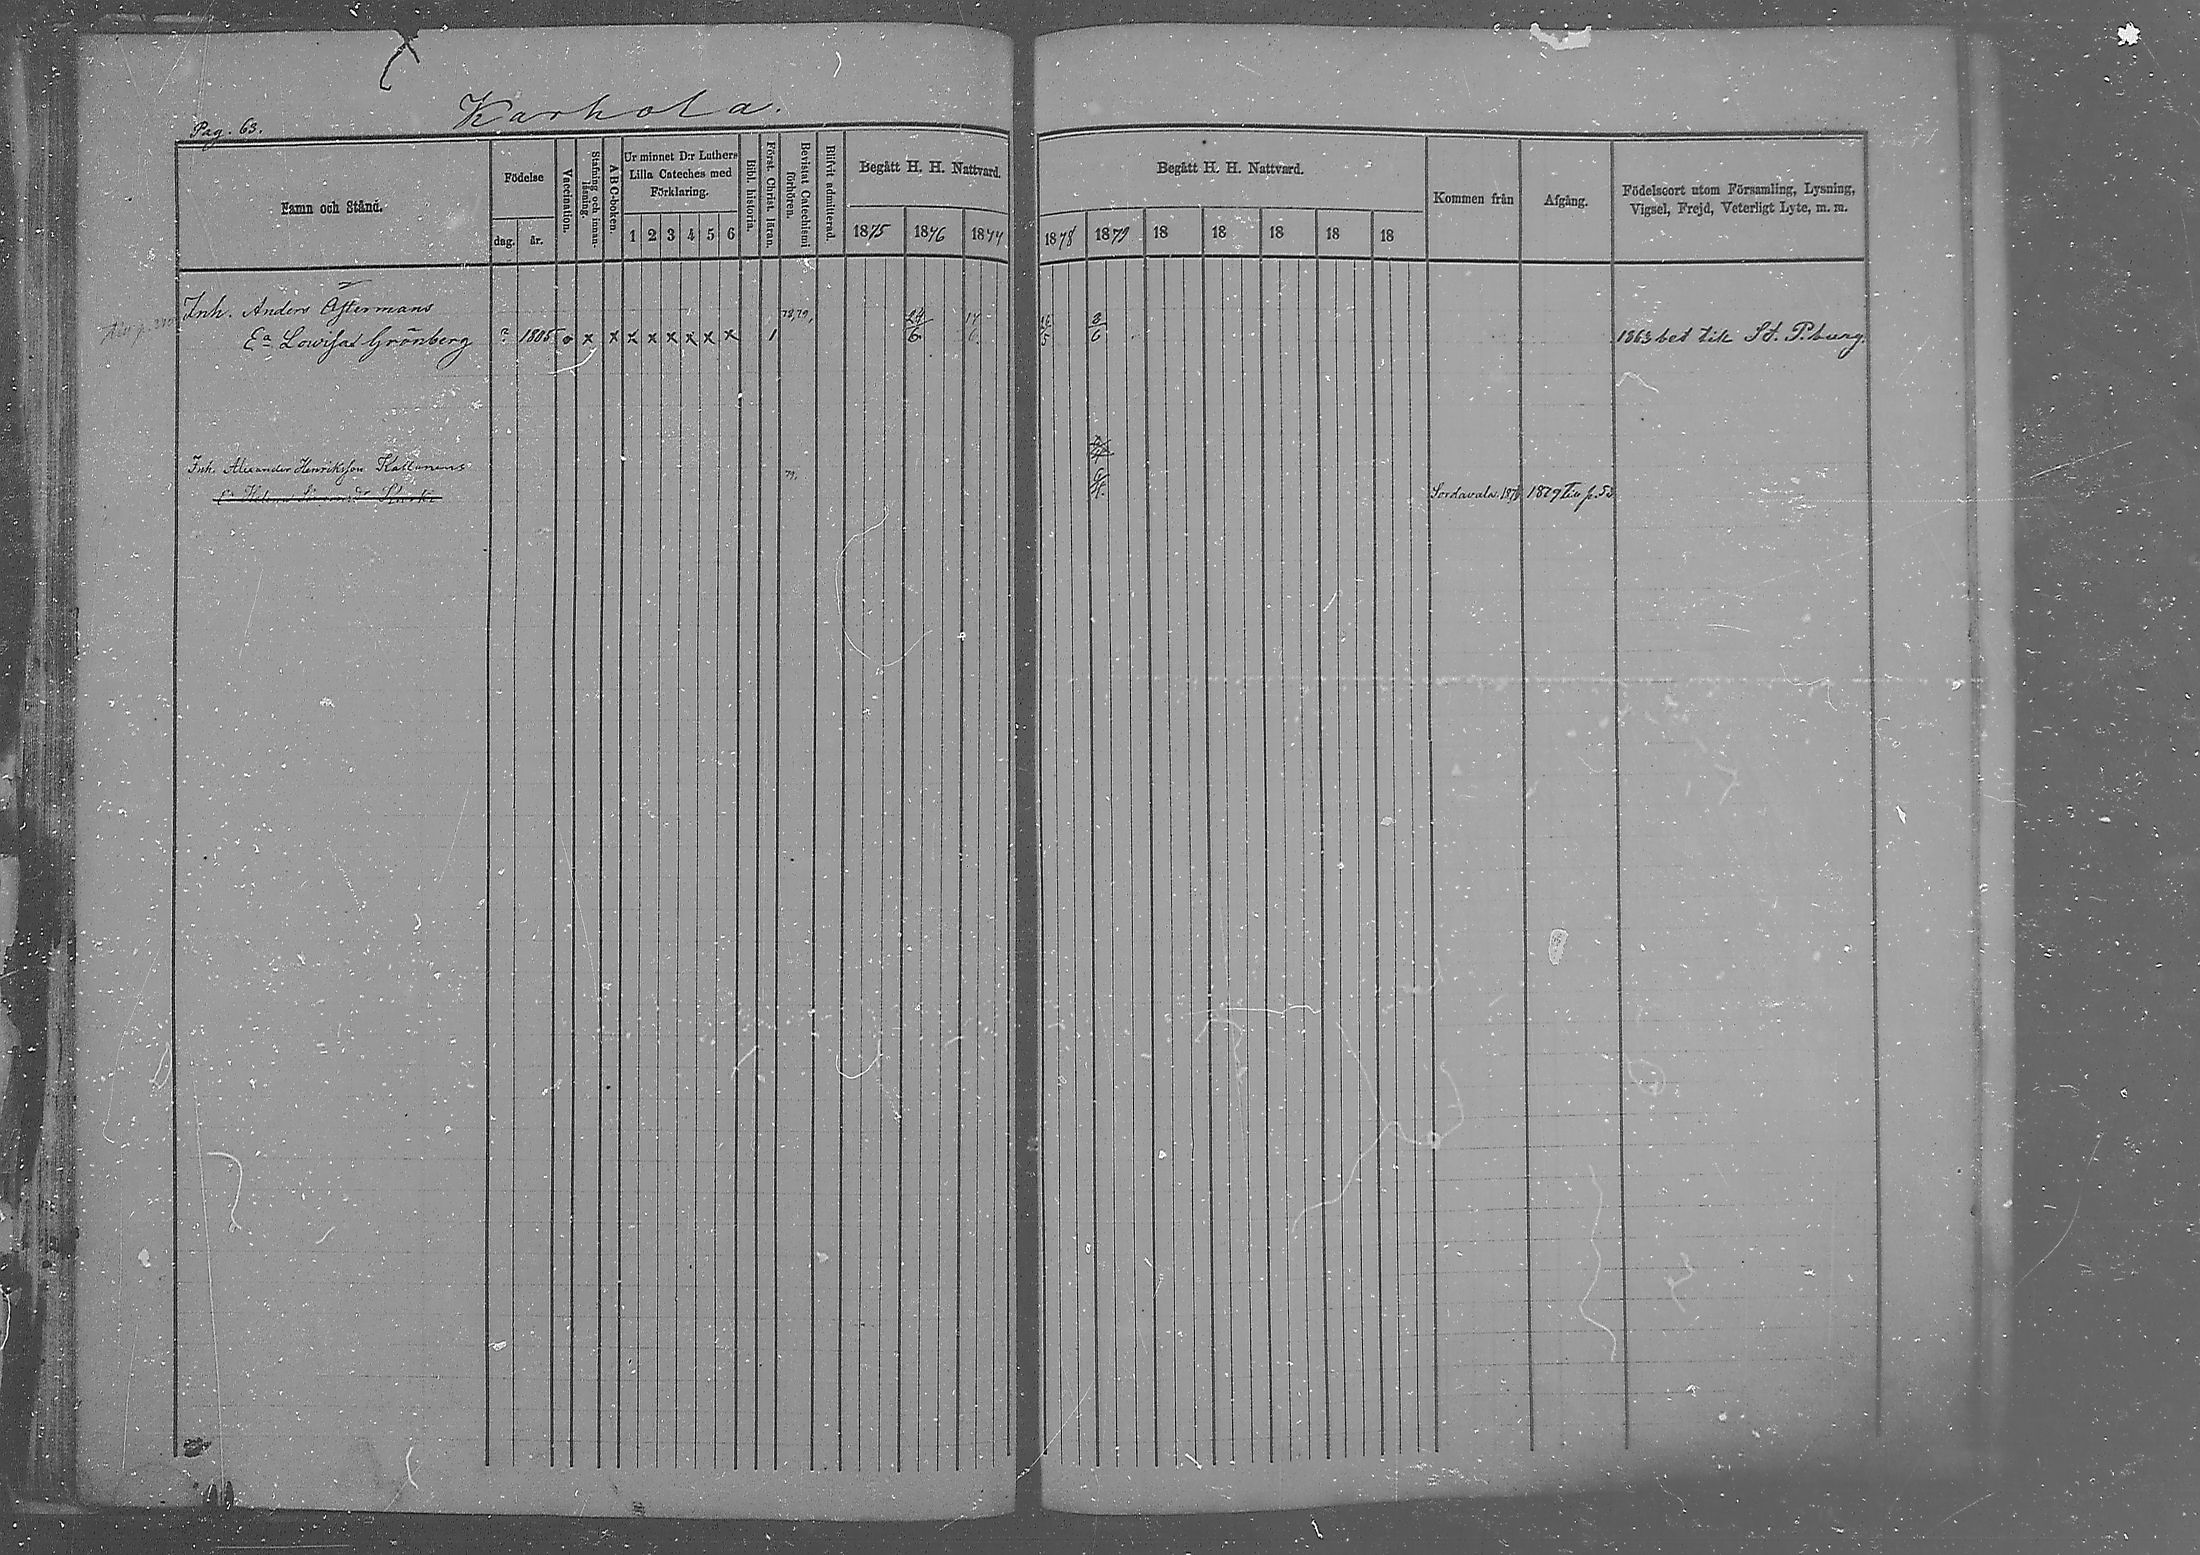 Karhola.
Pag. 63.
Namn och Stånd.
Födelse
dag. år.
Vaccination.
Stafning och innanläsning.
A B C-boken.
Ur minnet D:r Luthers
Lilla Cateches med
Förklaring.
1 2 3 4 5 6
Bibl. historia.
Först. Christ. läran.
Bevistat Catechismi förhören.
Blifvit admitterad.
Begått H. H. Nattvard.
1875 1876 1877
Begått H. H. Nattvard.
1878 1879 18 18 18 18 18
Kommen från
Afgång.
Födelseort utom Församling, Lysning,
Vigsel, Frejd, Veterligt Lyte, m. m.
Inh. Anders Astermans 78,79,
Ea Lowisa Grönberg ? 1805 o x x x x x x x x 1 24/6 17/6 16/5 8/6 1863 bet till St. P.burg.
Inh. Alexander Henriksson Kattanens 79.
Ea Helena Kurki Sordavala 1876 1879 Till p. 53